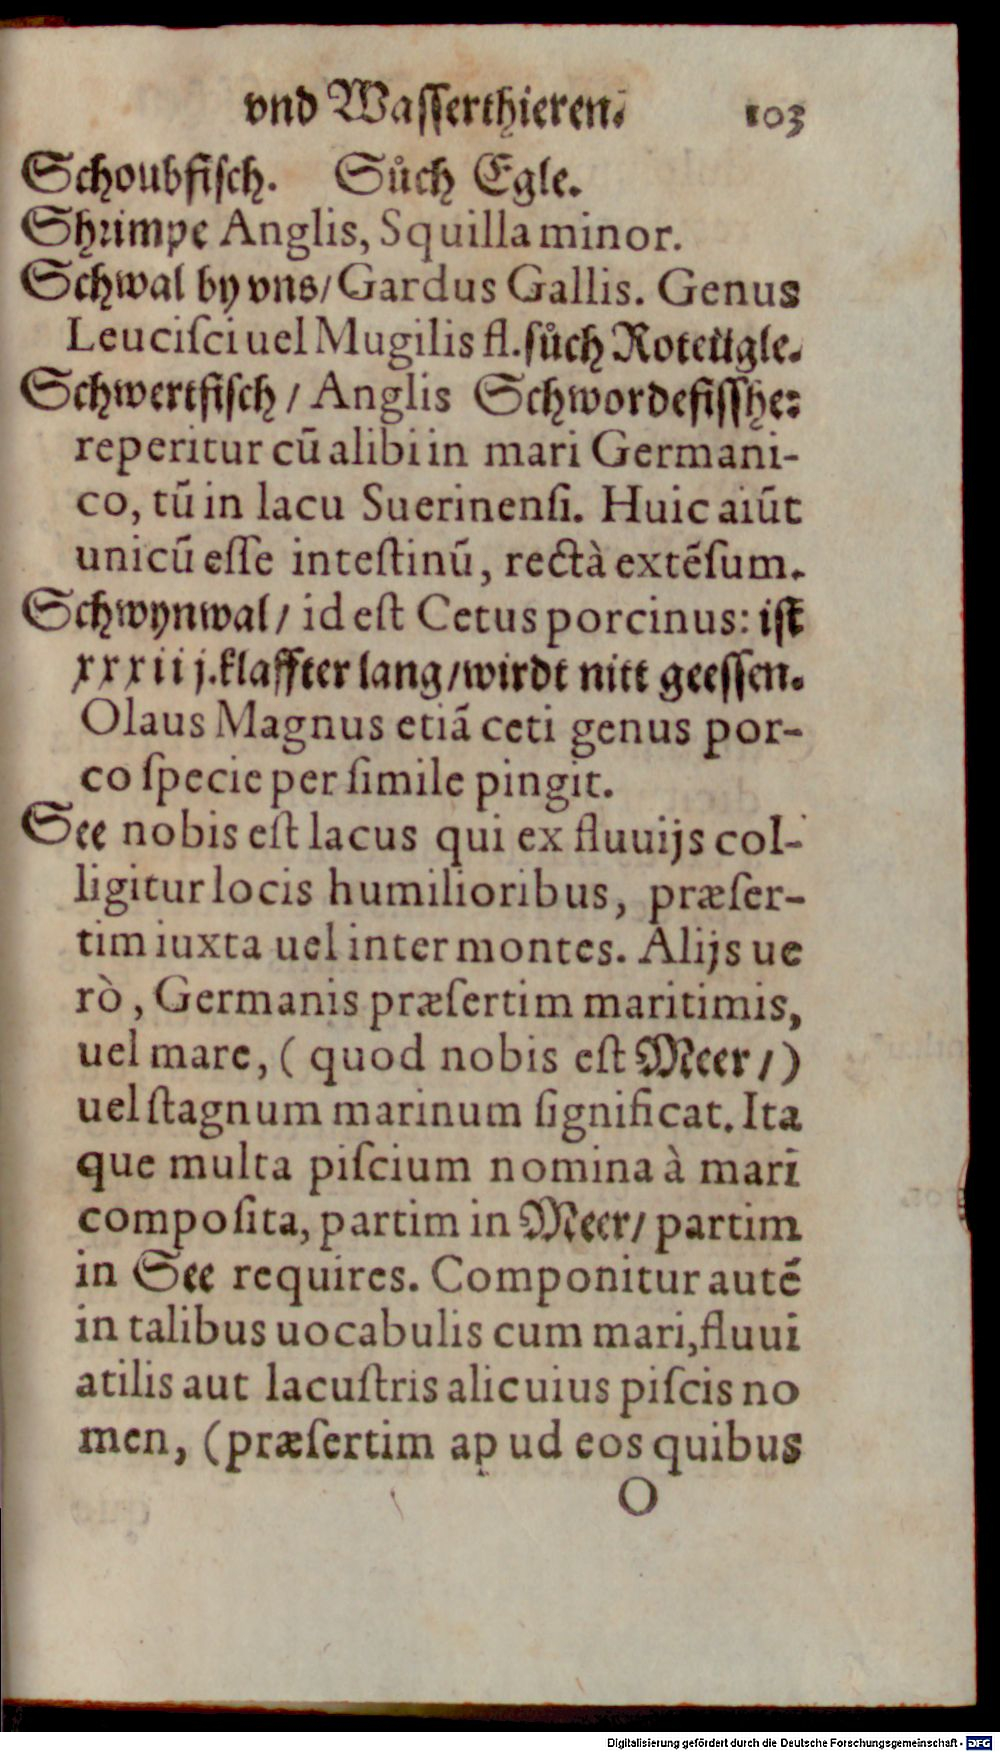 vnd Wasserthieren. 103
Schoubfiſch. Suͦch Egle.
Shrimpe Anglis, Squilla minor.
Schwal by vns/ Gardus Gallis. Genus
Leuciſci uel Mugilis fl. ſuͦch Roteügle.
Schwertfiſch / Anglis Schwordefiſſhe:
reperitur cū alibi in mari Germani-
co, tū in lacu Suerinenſi. Huic aiūt
unicū eſſe inteſtinū, rectà extēſum.
Schwynwal/ id eſt Cetus porcinus: iſt
xxxiij. klaffter lang/ wirdt nitt geeſſen.
Olaus Magnus etiā ceti genus por-
co ſpecie per ſimile pingit.
See nobis eſt lacus qui ex fluuijs col-
ligitur locis humilioribus, præſer-
tim iuxta uel inter montes. Alijs ue
rò, Germanis præſertim maritimis,
uel mare, ( quod nobis eſt Meer/)
uel ſtagnum marinum ſignificat. Ita
que multa piſcium nomina à mari
compoſita, partim in Meer/ partim
in See requires. Componitur autē
in talibus uocabulis cum mari, fluui
atilis aut lacuſtris alicuius piſcis no
men, (præſertim apud eos quibus
O
Digitalisierung gefördert durch die Deutsche Forschungsgemeinschaft - DFG